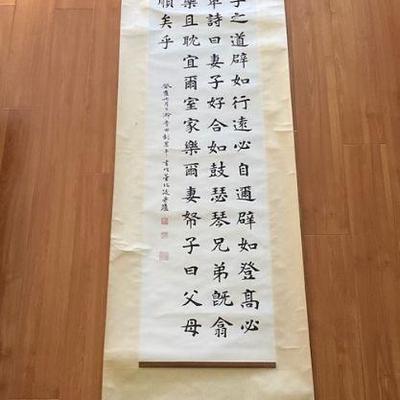 子之道辟如行遠必自邇辟如登髙必
卑詩曰妻子好合如鼓瑟琴兄弟旣翕
樂且耽宜爾室家樂爾妻帑子曰父母
順矣乎